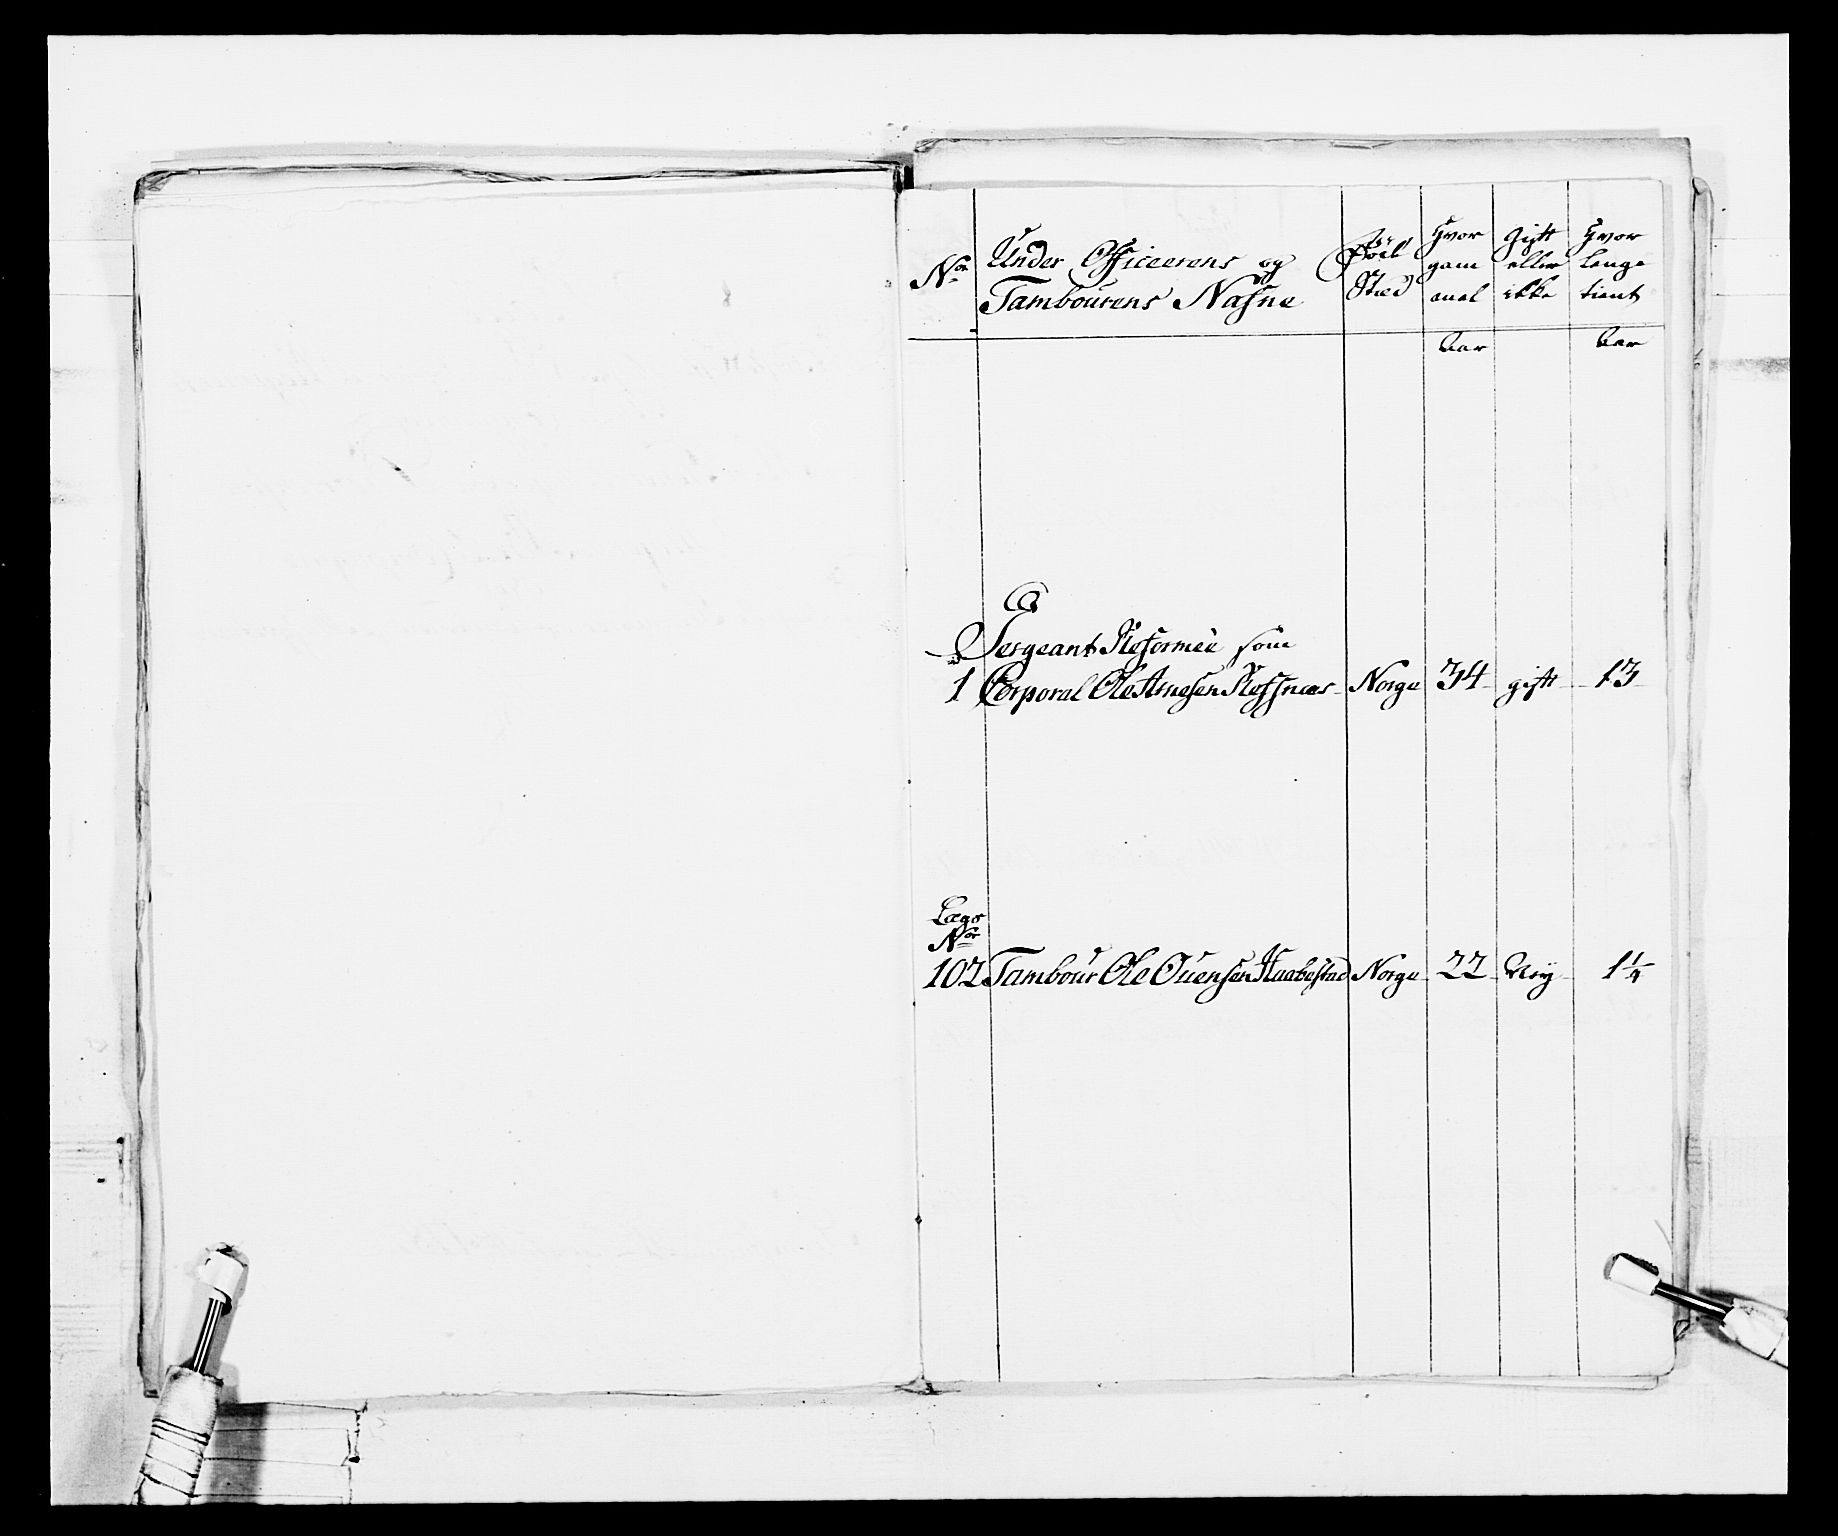 No
Under Officeerens og
Tambourens Nafne
Föde
Stæd
Hvor
gam
mel
Gift
eller
ikke
Hvor
lenge
tient
Aar
Aar
Sergeant Reformée som
1 Corporal Ole Arnesen Refsnæs Norge 34 gift 13
Lægs
No
102 Tambour Ole Ouensen Norge 22 Ney 1 1/4